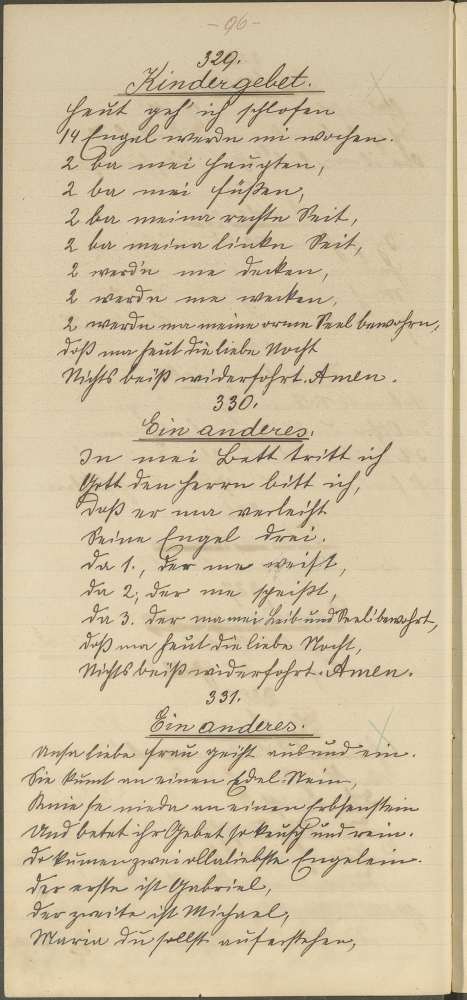 - 96 -
329.
Kindergebet.
Heut geh' ich schlofen
14 Engel werdn mi wochen.
2 ba mei Haupten,
2 ba mei Füßen,
2 ba meina rechte Seit,
2 ba meina linkn Seit,
2 werd'n me decken,
2 werdn me wecken,
2 werdn ma meine orme Seel bewohrn,
doß ma heut die liebe Nocht
Nichts beiß widerfohrt. Amen.
330.
Ein anderes.
In mei Bett tritt ich
Gott den Herrn bitt ich,
Doß er ma verleiht
Seine Engel drei.
Da 1., der me weist,
da 2, der me speißt,
da 3. der ma mei Leib und Seel' bewohrt,
doß ma heut die liebe Nocht,
Nichts beiß widerfohrt. Amen.
331.
Ein anderes.
Unsa liebe Frau geiht aus und ein.
Sie kumt an einen Edel-Stein,
Knie se nieda an einen Erbsenstein
Und betet ihr Gebet so keusch und rein.
Do kumen zwei ollaliebste Engelein.
Der erste ist Gabriel,
der zweite ist Michael,
Maria du sollst auferstehen,